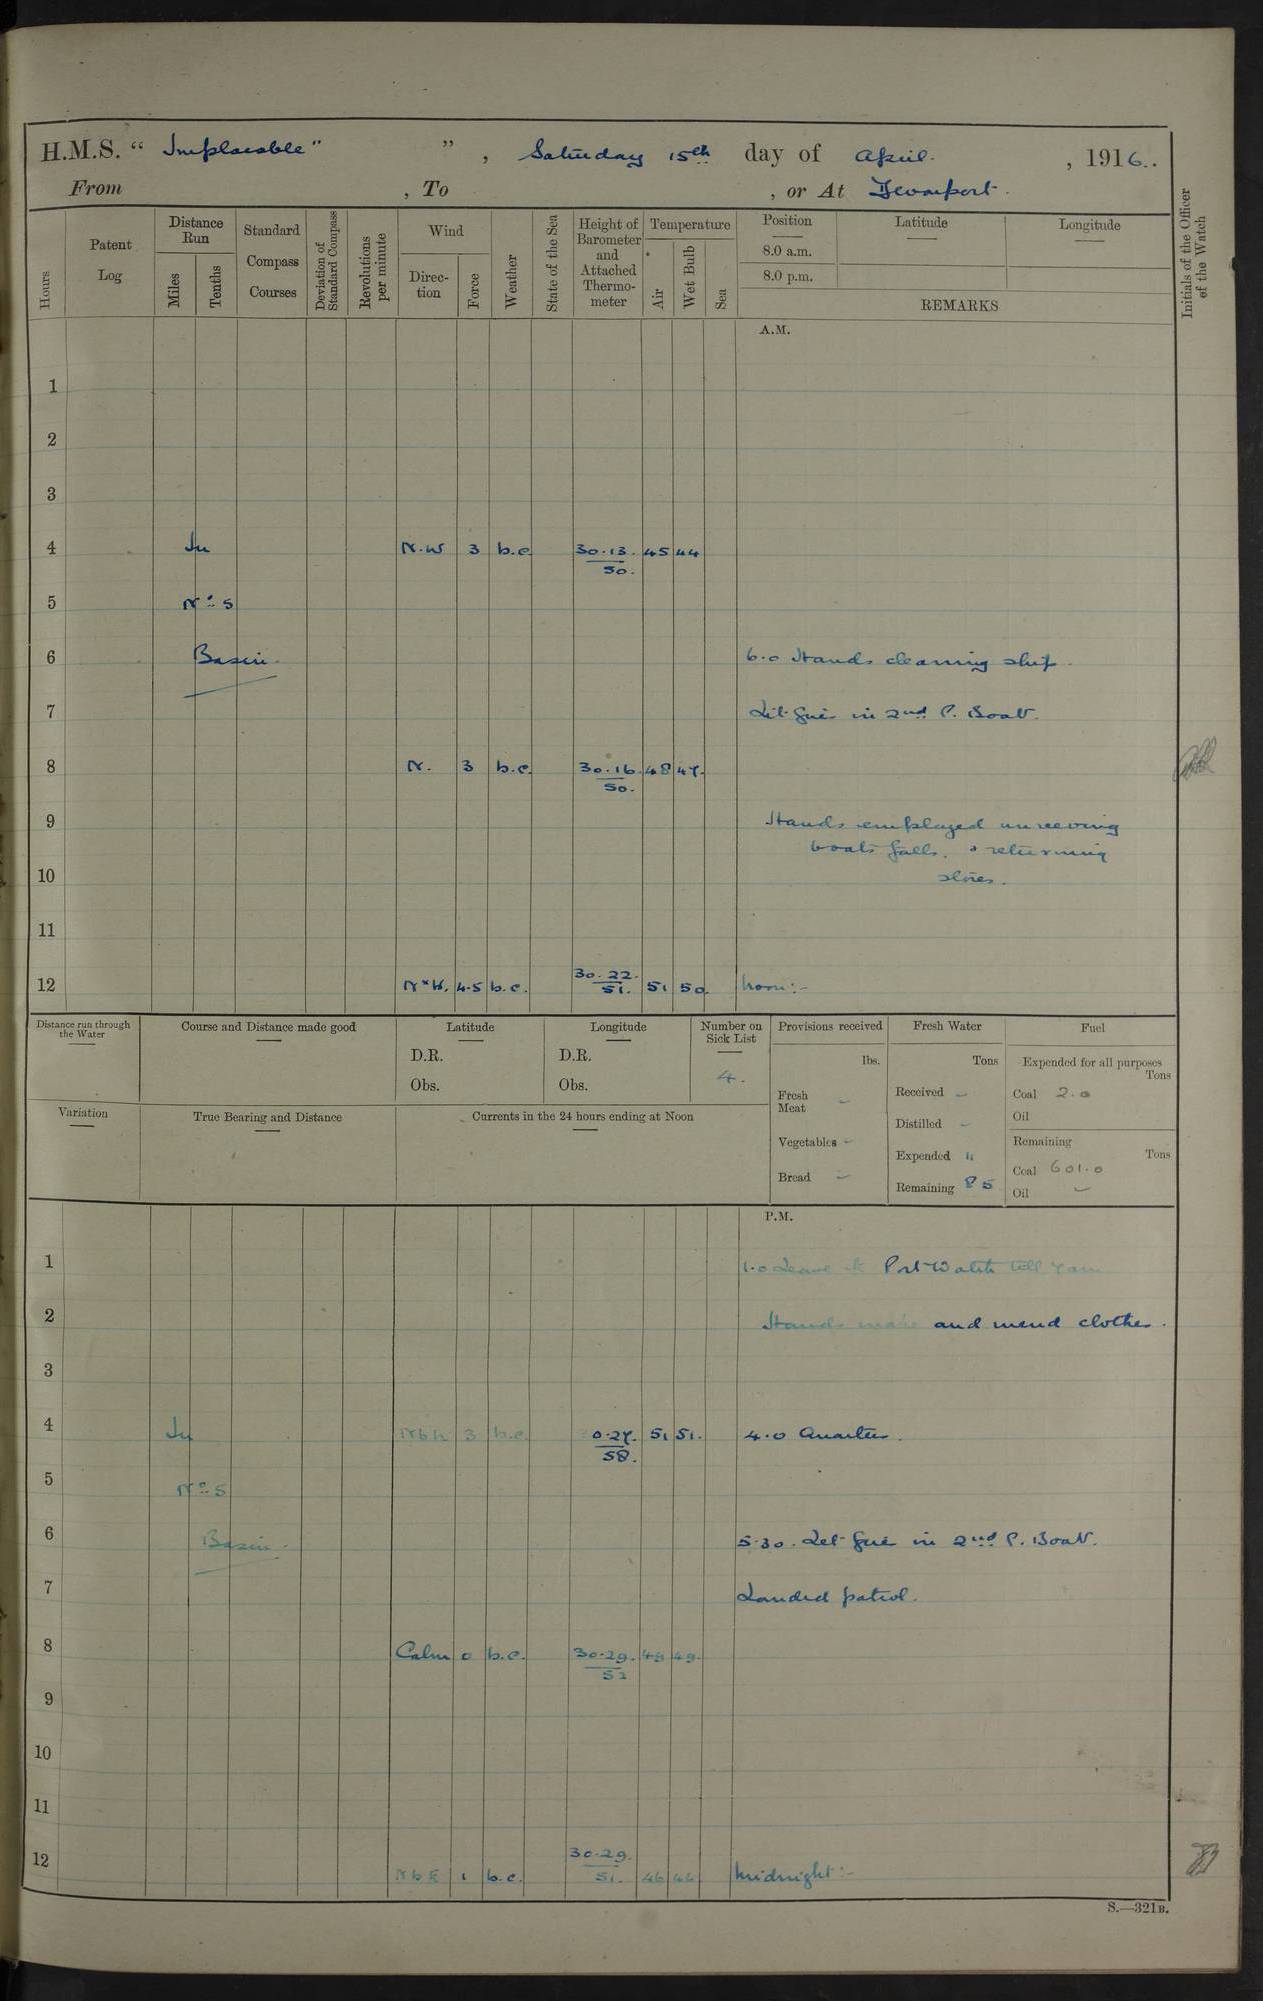 H.M.S. “ Implacable ” ” , Saturday 15th day of April. , 1916.
From , To , or At Devonport.
Hours
Patent Log
Distance Run
Miles
Tenths
Standard Compass Courses
Deviation of Standard Compass
Revolutions per minute
Wind
Direc-tion
Force
Weather
State of the Sea
Height of Barometer and Attached Thermo-meter
Temperature
Air
Wet Bulb
Sea
Position
8.0 a.m.
8.0 p.m.
Latitude
Longitude
REMARKS
Initials of the Officer of the Watch
A.M.
1
2
3
4 In N.W 3 b.c. 30.13. 45 44
50.
5 No 5
6 Basin. 6.0 Hands cleaning ship.
7 Lit fire in 2nd P. Boat.
8 N. 3 b.c. 30.16. 48 47.
50.
9 Hands employed unreeving
boats falls, & returning
10 stores.
11
12 4.5 b.c. 30.22. 51 50. Noon:-
51.
Distance run through the Water
Course and Distance made good
Latitude
D.R.
Obs.
Longitude
D.R.
Obs.
Number on Sick List
4.
Provisions received
lbs.
Fresh Meat -
Vegetables -
Bread -
Fresh Water
Tons
Received -
Distilled -
Expended 11
Remaining 85
Fuel
Expended for all purposes
Tons
Coal 2.0
Oil
Remaining
Tons
Coal 601.0
Oil -
Variation
True Bearing and Distance
Currents in the 24 hours ending at Noon
P.M.
1 1.0 Leave to Port Watch till 7am
2 Hands make and mend clothes.
3
4 In 3 b.c. 0.27. 51 51. 4.0 Quarters.
58.
5 No 5
6 Basin. 5.30. Let fire in 2nd P. Boat.
7 Landed patrol.
8 Calm 0 b.c. 30.29. 49 49.
52
9
10
11
12 NbE 1 b.c. 30.29. 46 Midnight:-
51.
S.—321B.